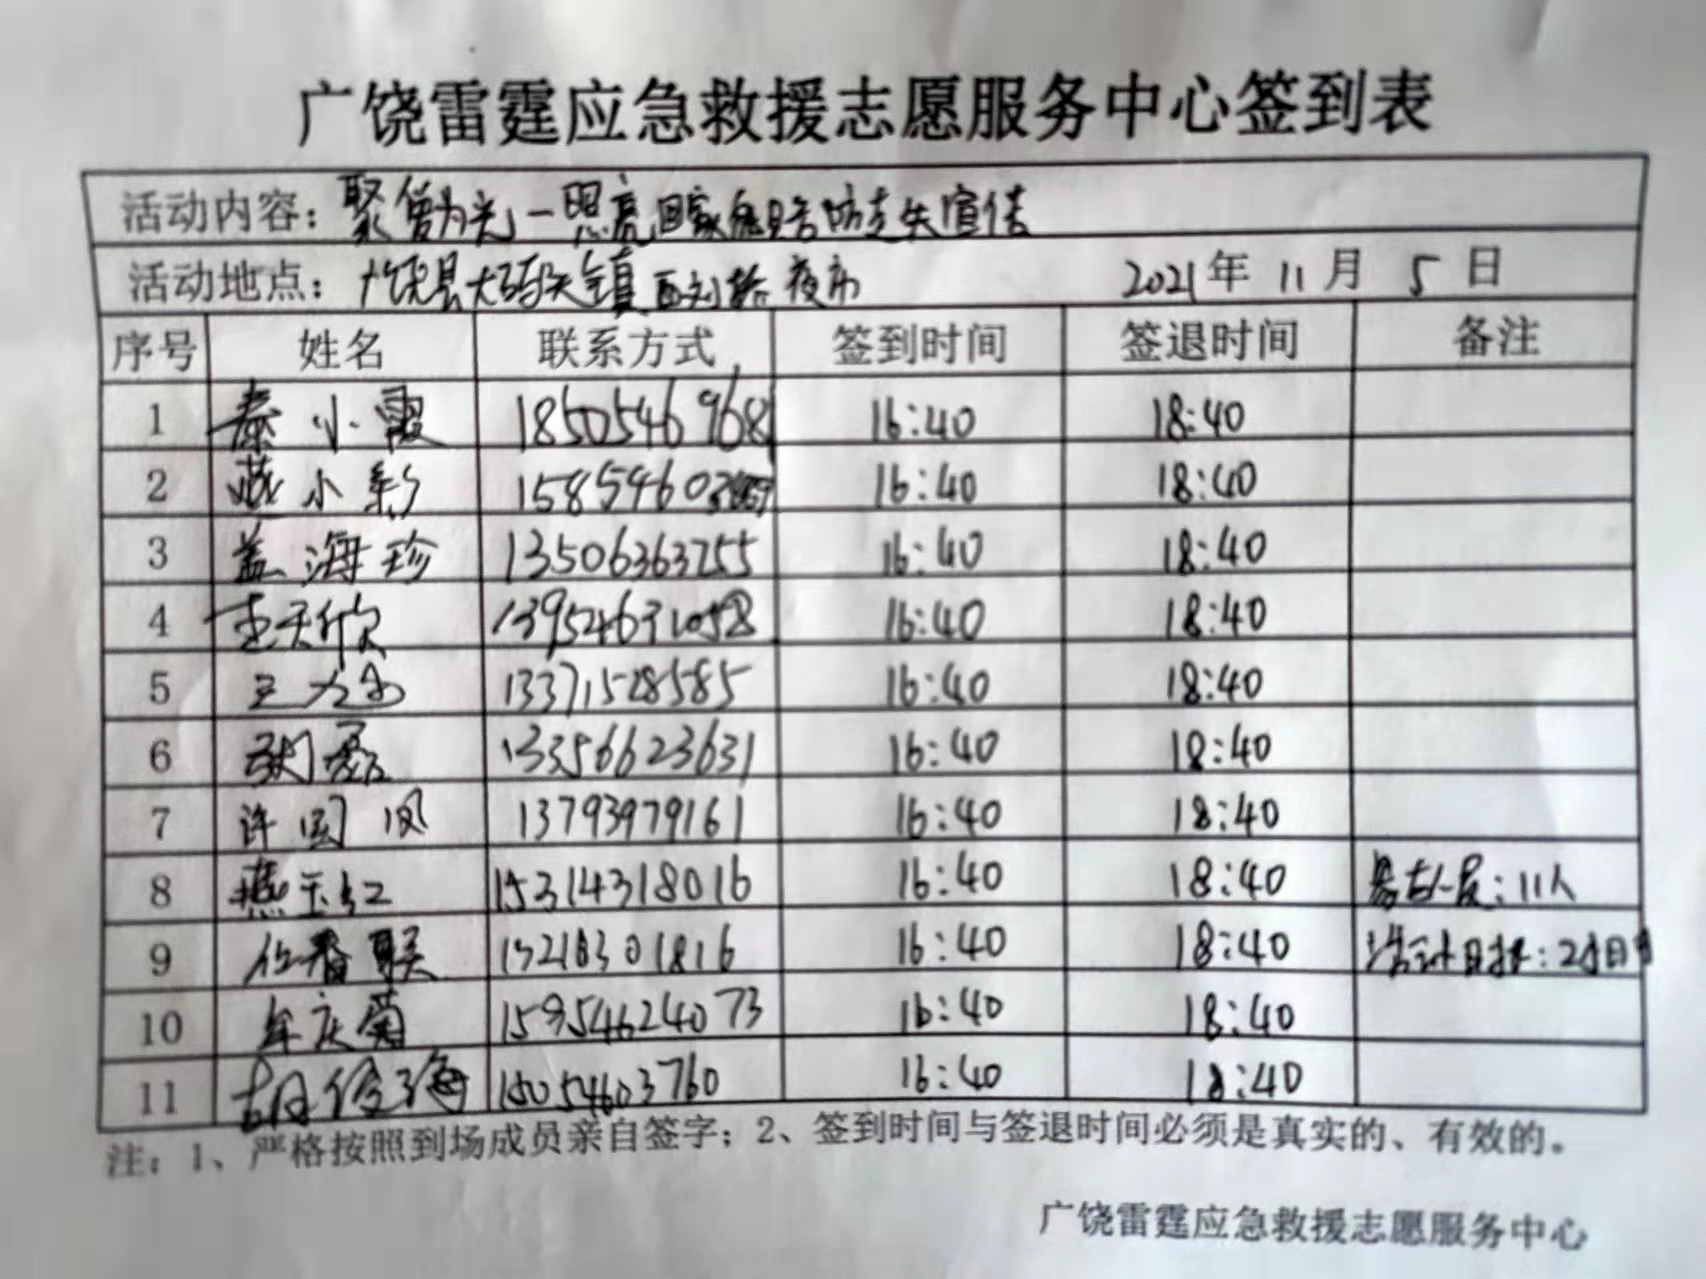 广饶雷霆应急救援志愿服务中心签到表
活动内容：聚萤为光—照亮回家 防走失宣传
活动地点：广饶县大码头镇西刘桥夜市 2021年 11月 5日
序号 姓名 联系方式 签到时间 签退时间 备注
1 秦小霞 18505469681 16:40 18:40
2 燕小彩 16:40 18:40
3 盖海珍 13506363255 16:40 18:40
4 16:40 18:40
5 13371528585 16:40 18:40
6 张磊 13356623631 16:40 18:40
7 许国凤 13793979161 16:40 18:40
8 燕玉红 15314318016 16:40 18:40 参与人员：11人
9 16:40 18:40 活动时长：2小时
10 年庆菊 15954624073 16:40 18:40
11 胡俊海 15054603760 16:40 18:40
注：1、严格按照到场成员亲自签字；2、签到时间与签退时间必须是真实的、有效的。
广饶雷霆应急救援志愿服务中心